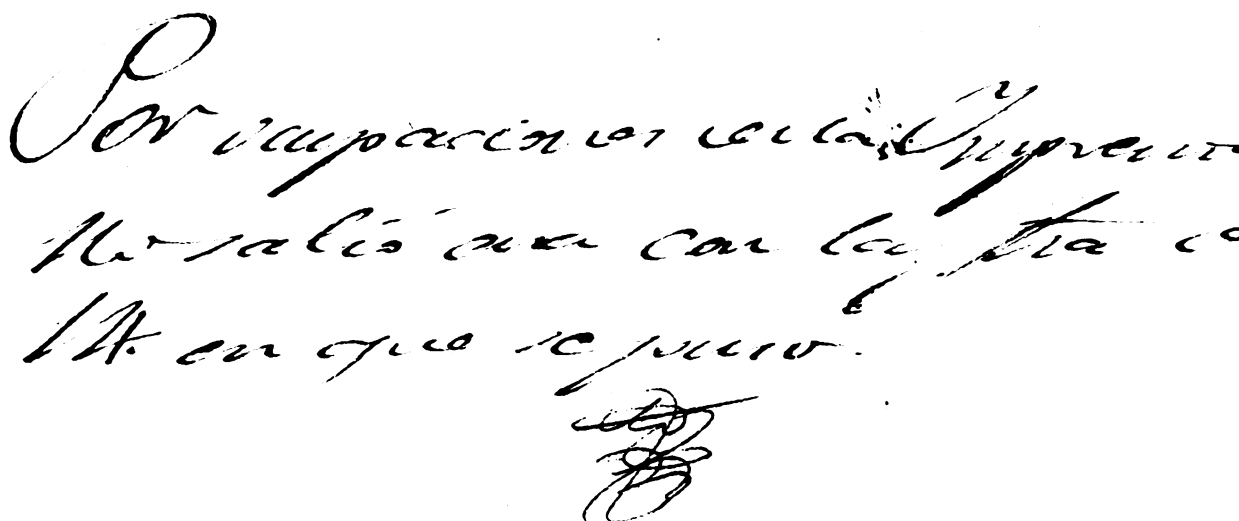 Por ocupaciones en la Imprenta
No salió esa con la fha
14. en que se puso.